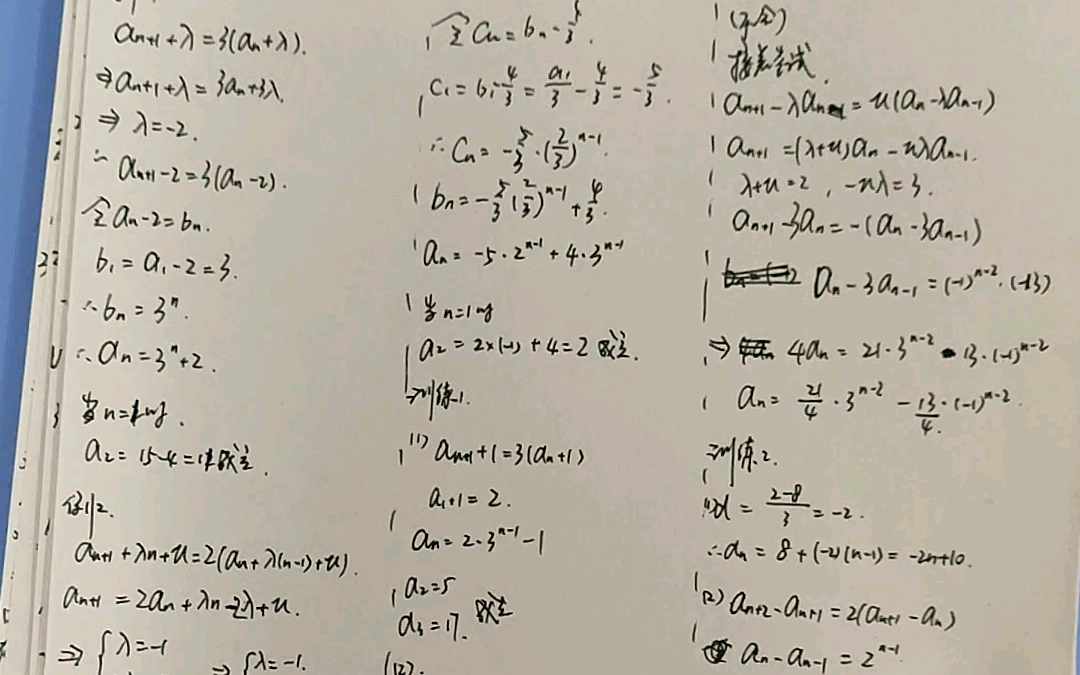 aₙ₊₁+λ=3(aₙ+λ).
⇒aₙ₊₁+λ=3aₙ+3λ.
⇒ λ=-2.
∴ aₙ₊₁-2=3(aₙ-2).
令aₙ-2=bₙ.
b₁=a₁-2=3.
∴bₙ=3ⁿ.
∴aₙ=3ⁿ+2.
当n=1时.
a₂=15-4=11成立.
例2.
aₙ₊₁+λn+u=2(aₙ+λ(n-1)+u).
aₙ₊₁=2aₙ+λn-2λ+u.
⇒{λ=-1 ⇒{λ=-1.
令Cₙ=bₙ-
C₁=b₁-4/3=a₁/3-4/3=-5/3.
∴Cₙ=-5/3·(2/3)ⁿ⁻¹.
bₙ=-5/3(2/3)ⁿ⁻¹+4/3.
aₙ=-5·2ⁿ⁻¹+4·3ⁿ⁻¹
当n=1时
a₂=2×(-1)+4=2 成立.
训练1.
(1) aₙ₊₁+1=3(aₙ+1)
a₁+1=2.
aₙ=2·3ⁿ⁻¹-1
a₂=5
a₃=17. 成立
(2).
aₙ₊₁-λaₙ=u(aₙ-λaₙ₋₁)
aₙ₊₁=(λ+u)aₙ-uλaₙ₋₁.
λ+u=2, -uλ=3.
aₙ₊₁-3aₙ=-(aₙ-3aₙ₋₁)
aₙ-3aₙ₋₁=(-1)ⁿ⁻²·(-13)
⇒ 4aₙ=21·3ⁿ⁻² 13·(-1)ⁿ⁻²
aₙ=21/4·3ⁿ⁻²-13/4·(-1)ⁿ⁻².
训练2.
(1)d=(2-8)/3=-2.
∴aₙ=8+(-2)(n-1)=-2n+10.
(2) aₙ₊₂-aₙ₊₁=2(aₙ₊₁-aₙ)
aₙ-aₙ₋₁=2ⁿ⁻¹